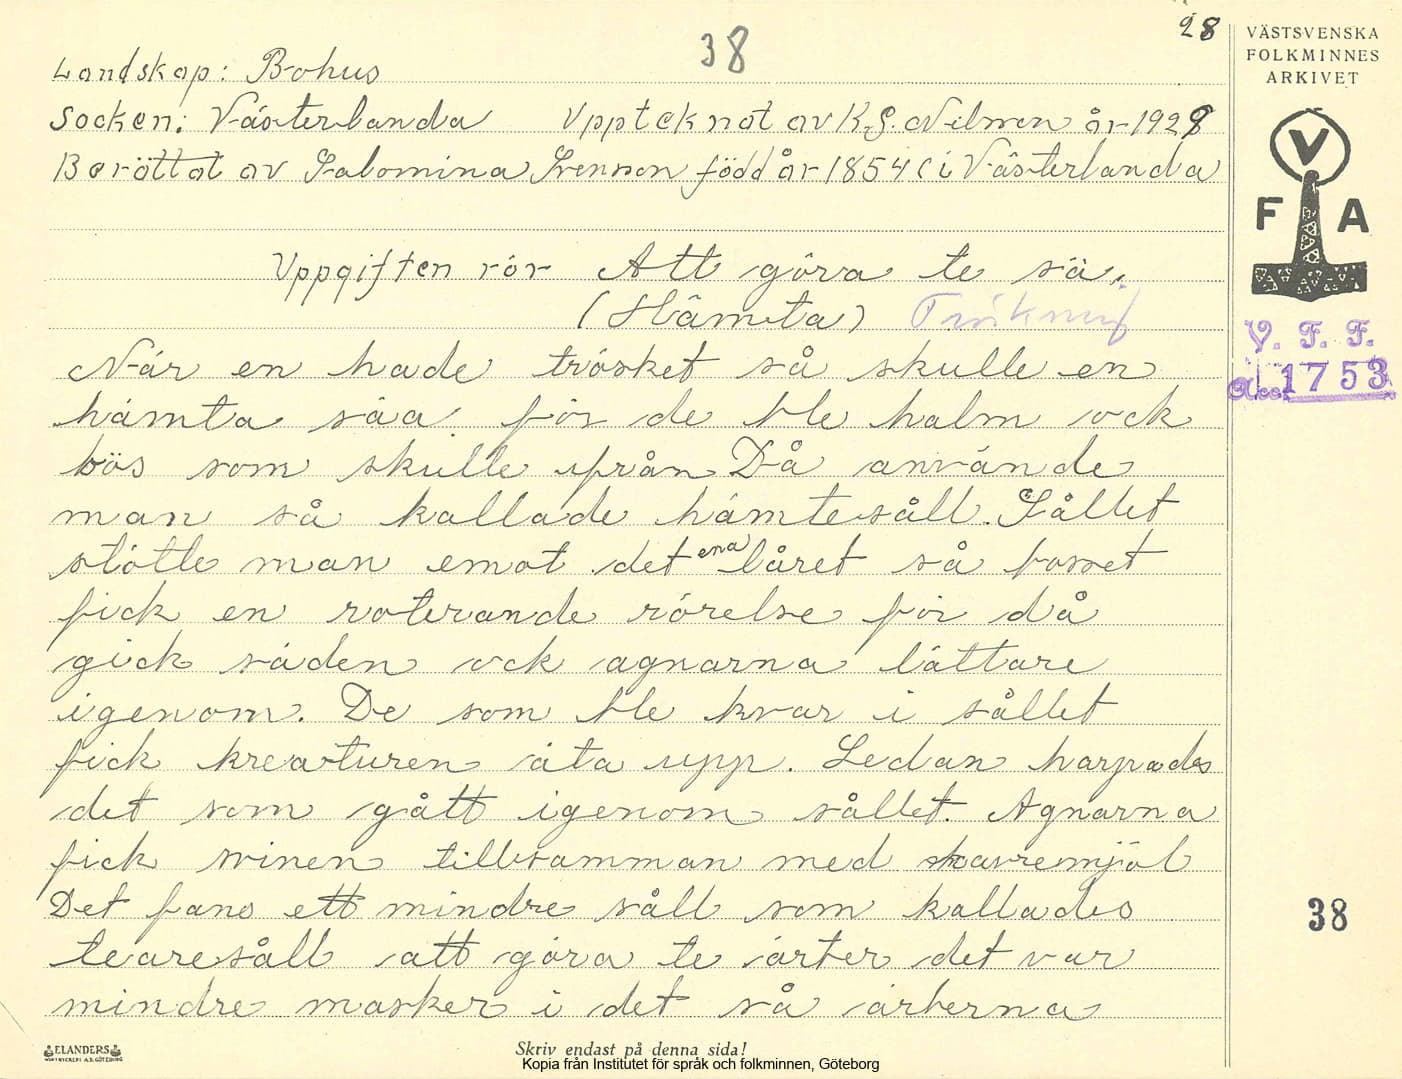 28
38
VÄSTSVENSKA
FOLKMINNES
ARKIVET
Landskap: Bohus
Socken: Västerlanda Upptecknat av K. G. Nilsson år 1928
Berättat av Salomina Svenson född år 1854 i Västerlanda
V
F A
Uppgiften rör Att göra te sä.
(Hämta) Tröskning
V. F. F.
Acc. 1753
När en hade trösket så skulle en
hämta säa för de ble halm ock
bös som skulle ifrån Då använde
man så kallade hämtesåll. Sållet
stötte man emot det ena låret så bosset
fick en roterande rörelse för då
gick säden ock agnarna lättare
igenom. De som ble kvar i sållet
fick kreaturen äta upp. Sedan harpades
det som gått igenom sållet. Agnarna
fick svinen tillsamman med havremjöl
Det fans ett mindre såll som kallades
38
tearesåll att göra te ärter det var
mindre masker i det så ärterna
ELANDERS
Skriv endast på denna sida!
Kopia från Institutet för språk och folkminnen, Göteborg